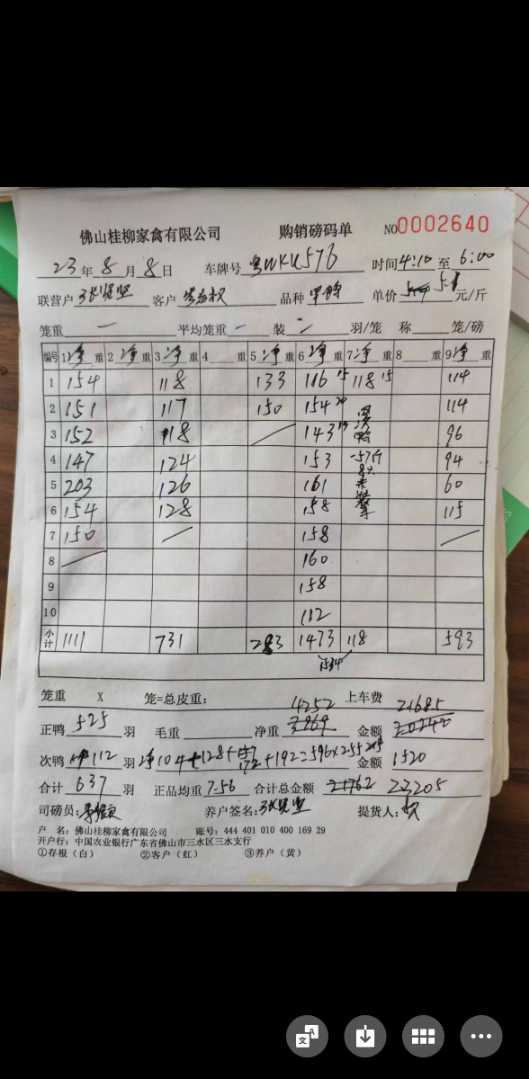 佛山桂柳家禽有限公司 购销磅码单 NO0002640
23年8月8日 车牌号 粤WKU576 时间4:10至6:00
联营户 客户 品种 单价 5.1 元/斤
笼重 一 平均笼重 一 装 羽/笼 称 笼/磅
编号 1净重 2净重 3净重 4 重 5净重 6净重 7净重 8 重 9净重
1 154 118 133 116 15 118 15 114
2 151 117 150 154 114
3 152 118 143 96
4 147 124 153 -57斤 94
5 203 126 161 60
6 154 128 158 115
7 150 158
8 160
9 158
10 112
小计 1111 731 283 1473 118 593
笼重 X 笼=总皮重: 4252 上车费 21685
正鸭 525 羽 毛重 净重 3969 金额
次鸭 112 羽 净104+128+ 172+192=596×255 金额 1520
合计 637 羽 正品均重 7.56 合计总金额 21762 23205
司磅员: 养户签名: 提货人:
户 名:佛山桂柳家禽有限公司 账号:444 401 010 400 169 29
开户行:中国农业银行广东省佛山市三水区三水支行
①存根(白) ②客户(红) ③养户(黄)